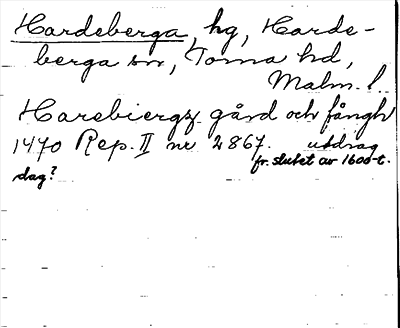 Hardeberga, hg, Harde-
berga sn, Torna hd,
Malm. l.
Harebiergz gård och fångh
1470 Rep. II nr 2867. utdrag
fr. slutet av 1600-t.
dag?